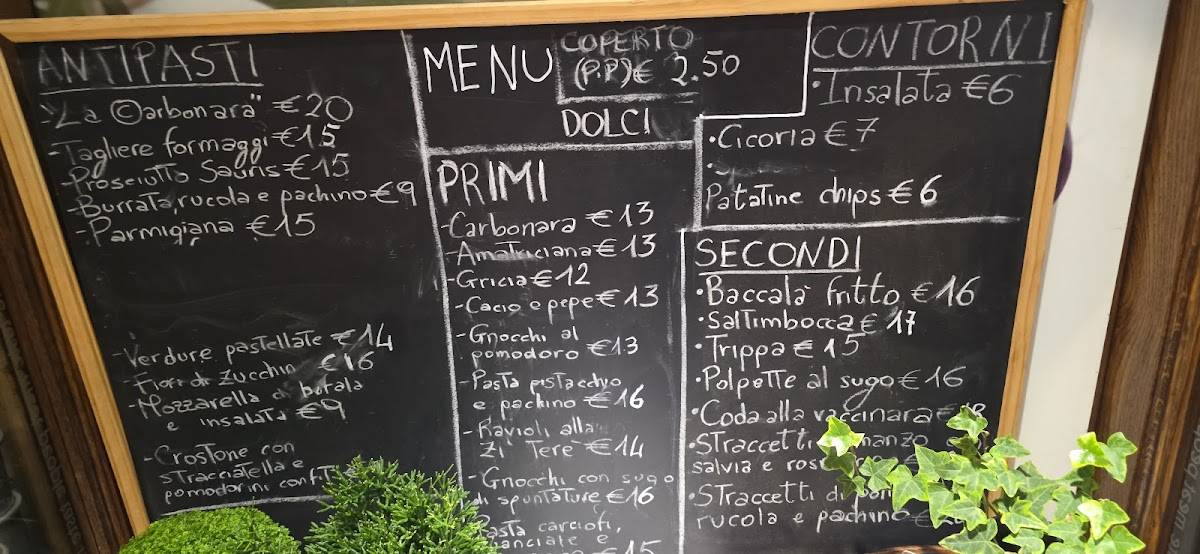 ANTIPASTI
"La Carbonara" €20
-Tagliere formaggi €15
-Prosciutto Sauris €15
-Burrata, rucola e pachino €9
-Parmigiana €15
-Verdure pastellate €14
-Fiori di Zucchin €16
-Mozzarella di bufala
e insalata €9
-Crostone con
stracciatella e
pomodorini confit
MENU
COPERTO
(P.P) € 2.50
DOLCI
PRIMI
-Carbonara €13
-Amatriciana €13
-Gricia €12
-Cacio e pepe €13
-Gnocchi al
pomodoro €13
-Pasta pistacchio
e pachino €16
-Ravioli alla
Zi' Tere' €14
-Gnocchi con sugo
di spuntature €16
Pasta carciofi,
uanciale e
€15
CONTORNI
·Insalata €6
·Cicoria €7
Patatine chips €6
SECONDI
·Baccalà fritto €16
·Saltimbocca €17
·Trippa €15
·Polpette al sugo €16
·Coda alla vaccinara €18
·Straccetti manzo
salvia e ros
·Straccetti di
rucola e pachino €